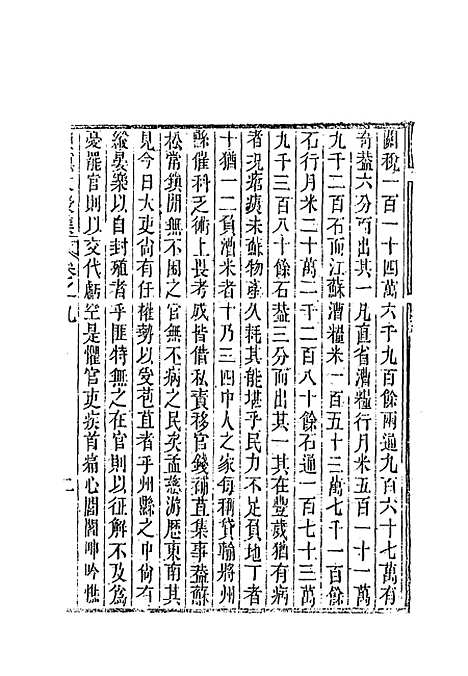 關稅一百一十四萬六千九百餘兩通九百六十七萬有
奇葢六分而出其一凡直省漕糧行月米五百一十一萬
九千二百石而江蘇漕糧米一百五十三萬七千一百餘
石行月米二十萬二千二百八十餘石通一百七十三萬
九千三百八十餘石葢三分而出其一其在豐歲猶有病
者況瘡痍未蘇物產久耗其能堪乎民力不足負地丁者
十猶一二負漕米者十乃三四中人之家每稱貸輸將州
縣催科之術上畏考成皆借私責移官錢補苴集事葢蘇
松常鎮閒無不困之官無不病之民矣孟慈游歷東南其
見今日大吏尙有任權勢以受苞苴者乎州縣之中尙有
縱宴樂以自封殖者乎匪特無之在官則以征解不及為
憂罷官則以交代虧空是懼官吏疾首痛心閭閻呻吟憔
卷之九
二